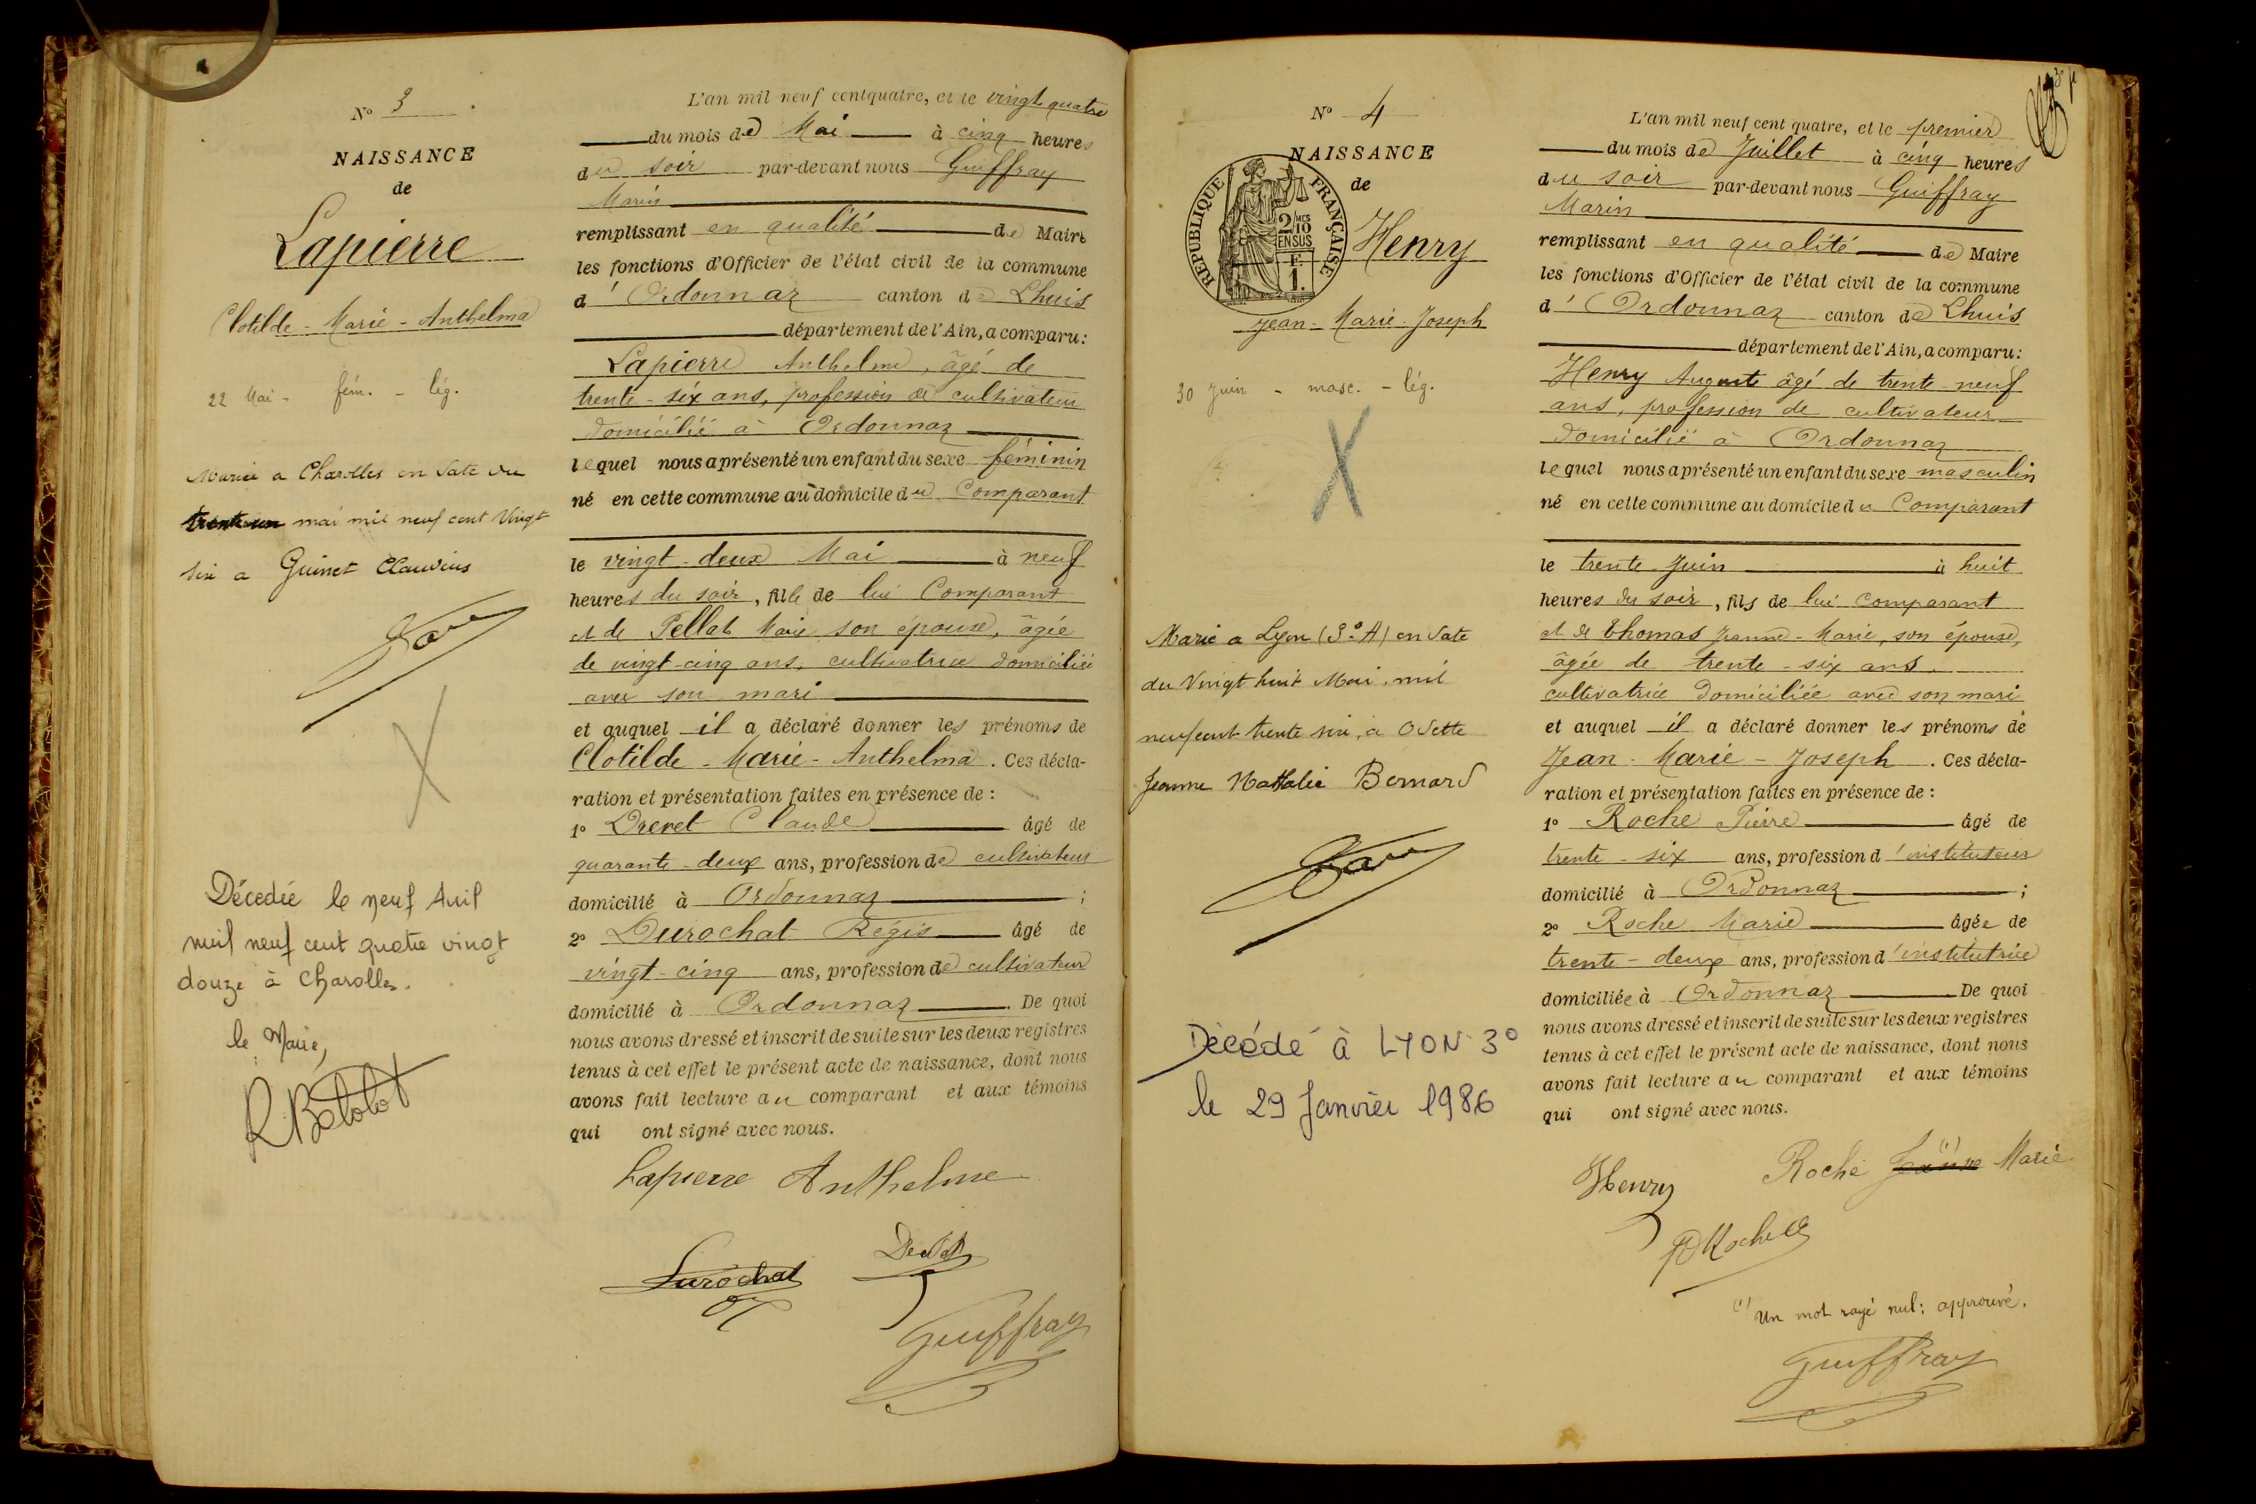 N° 3
NAISSANCE
de
Lapierre
Clotilde - Marie - Anthelma
22 Mai - fém. - lég.
Mariée a Charolles en date du
trente un mai mil neuf cent vingt
six a Guinet Claudius
Décedée le neuf Avril
mil neuf cent quatre vingt
douze à Charolles.
le Maire,
L'an mil neuf cent quatre, et le vingt quatre
du mois de Mai à cinq heures
du soir par-devant nous Guiffray
Marin
remplissant en qualité de Maire
les fonctions d'Officier de l'état civil de la commune
d' Ordonnaz canton de Lhuis
département de l'Ain, a comparu:
Lapierre Anthelme, âgé de
trente-six ans, profession de cultivateur
domicilié à Ordonnaz
lequel nous a présenté un enfant du sexe féminin
né en cette commune au domicile du Comparant
le vingt-deux Mai à neuf
heures du soir, fille de lui Comparant
et de Pellat Marie son épouse, âgée
de vingt-cinq ans, cultivatrice domiciliée
avec son mari
et auquel il a déclaré donner les prénoms de
Clotilde - Marie - Anthelma. Ces décla-
ration et présentation faites en présence de :
1° Drevet Claude âgé de
quarante-deux ans, profession de cultivateur
domicilié à Ordonnaz ;
2° Durochat Régis âgé de
vingt-cinq ans, profession de cultivateur
domicilié à Ordonnaz. De quoi
nous avons dressé et inscrit de suite sur les deux registres
tenus à cet effet le présent acte de naissance, dont nous
avons fait lecture au comparant et aux témoins
qui ont signé avec nous.
Lapierre Anthelme
Durochat
Guiffray
N° 4
NAISSANCE
de
RÉPUBLIQUE FRANÇAISE
2/10
EN SUS
F.
1.
Henry
Jean - Marie - Joseph
30 Juin - masc. - lég.
Marié a Lyon (3° A) en date
du vingt huit Mai, mil
neuf cent trente six, a Odette
Jeanne Nathalie Bernard
Décédé à LYON 3°
le 29 Janvier 1986
L'an mil neuf cent quatre, et le premier
du mois de Juillet à cinq heures
du soir par-devant nous Guiffray
Marin
remplissant en qualité de Maire
les fonctions d'Officier de l'état civil de la commune
d' Ordonnaz canton de Lhuis
département de l'Ain, a comparu:
Henry Auguste âgé de trente-neuf
ans, profession de cultivateur
domicilié à Ordonnaz
lequel nous a présenté un enfant du sexe masculin
né en cette commune au domicile du Comparant
le trente Juin à huit
heures du soir, fils de lui comparant
et de Thomas Jeanne-Marie, son épouse,
âgée de trente-six ans,
cultivatrice domiciliée avec son mari
et auquel il a déclaré donner les prénoms de
Jean - Marie - Joseph. Ces décla-
ration et présentation faites en présence de :
1° Roche Pierre âgé de
trente-six ans, profession d'instituteur
domicilié à Ordonnaz ;
2° Roche Marie âgée de
trente-deux ans, profession d'institutrice
domiciliée à Ordonnaz. De quoi
nous avons dressé et inscrit de suite sur les deux registres
tenus à cet effet le présent acte de naissance, dont nous
avons fait lecture au comparant et aux témoins
qui ont signé avec nous.
Henry Roche (1) Marie
Roche
(1) Un mot rayé nul: approuvé.
Guiffray